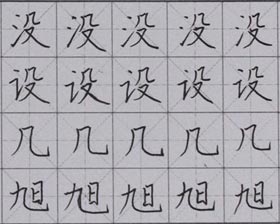 没没没没没
设设设设设
几几几几几
旭旭旭旭旭